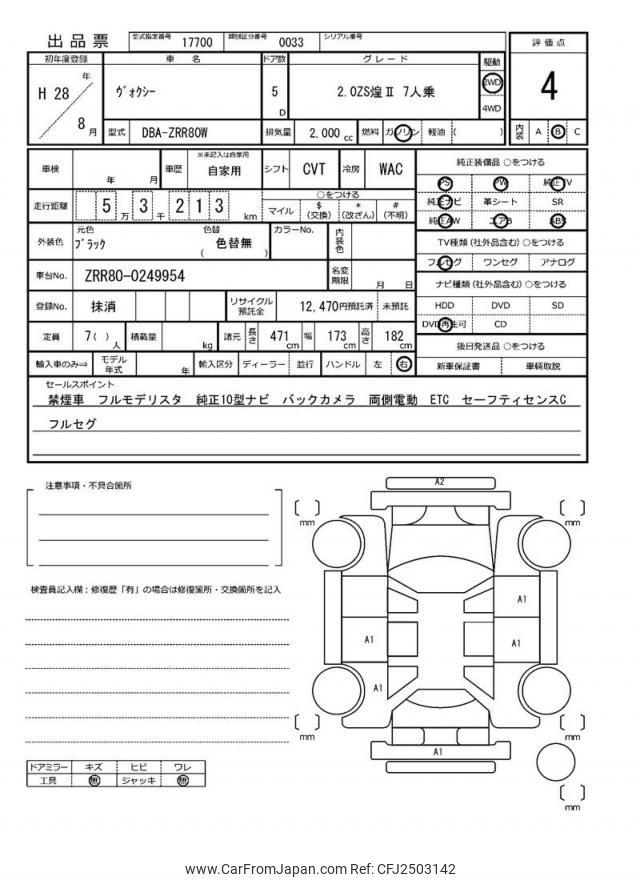 出品票
型式指定番号 17700 類別区分番号 0033 シリアル番号
評価点
4
初年度登録 車名 ドア数 グレード 駆動
H 28 年 8 月
ヴォクシー
5 D
2.0ZS煌Ⅱ 7人乗
2WD
4WD
型式 DBA-ZRR80W 排気量 2,000 cc 燃料 ガソリン 軽油 ( )
内装 A B C
車検 年 月 車歴 ※未記入は自家用 自家用 シフト CVT 冷房 WAC
走行距離 5 万 3 千 2 1 3 km
○をつける
マイル $ (交換) * (改ざん) # (不明)
外装色 元色 ブラック 色替 色替無 ( ) カラーNo. 内装色
車台No. ZRR80-0249954 名変期限 月 日
登録No. 抹消 リサイクル預託金 12,470円預託済 未預託
定員 7( ) 人 積載量 kg 諸元 長さ 471 cm 幅 173 cm 高さ 182 cm
輸入車のみ⇒ モデル年式 年 輸入区分 ディーラー 並行 ハンドル 左 右
純正装備品 ○をつける
PS PW 純正TV
純正ナビ 革シート SR
純正AW エアB ABS
TV種類 (社外品含む) ○をつける
フルセグ ワンセグ アナログ
ナビ種類 (社外品含む) ○をつける
HDD DVD SD
DVD再生可 CD
後日発送品 ○をつける
新車保証書 車輌取説
セールスポイント
禁煙車 フルモデリスタ 純正10型ナビ バックカメラ 両側電動 ETC セーフティセンスC
フルセグ
注意事項・不具合箇所
検査員記入欄：修復歴「有」の場合は修復箇所・交換箇所を記入
ドアミラー キズ ヒビ ワレ
工具 無 ジャッキ 無
A2
[ ] mm
[ ] mm
A1
A1
A1
A1
[ ] mm
[ ] mm
A1
[ ] mm
www.CarFromJapan.com Ref: CFJ2503142